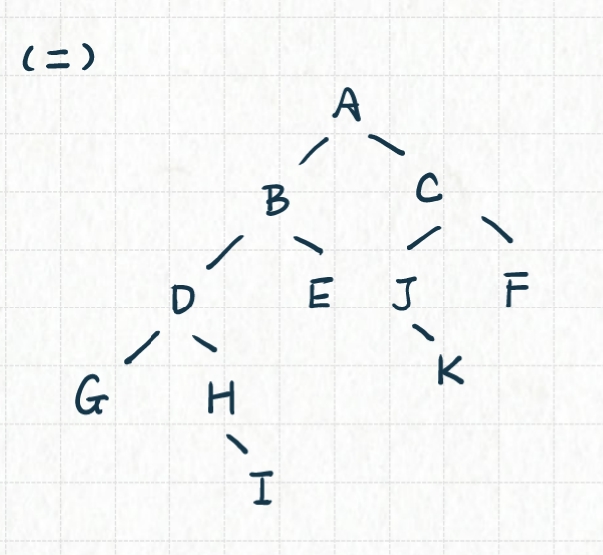 (二)
A
B C
D E J F
G H K
I